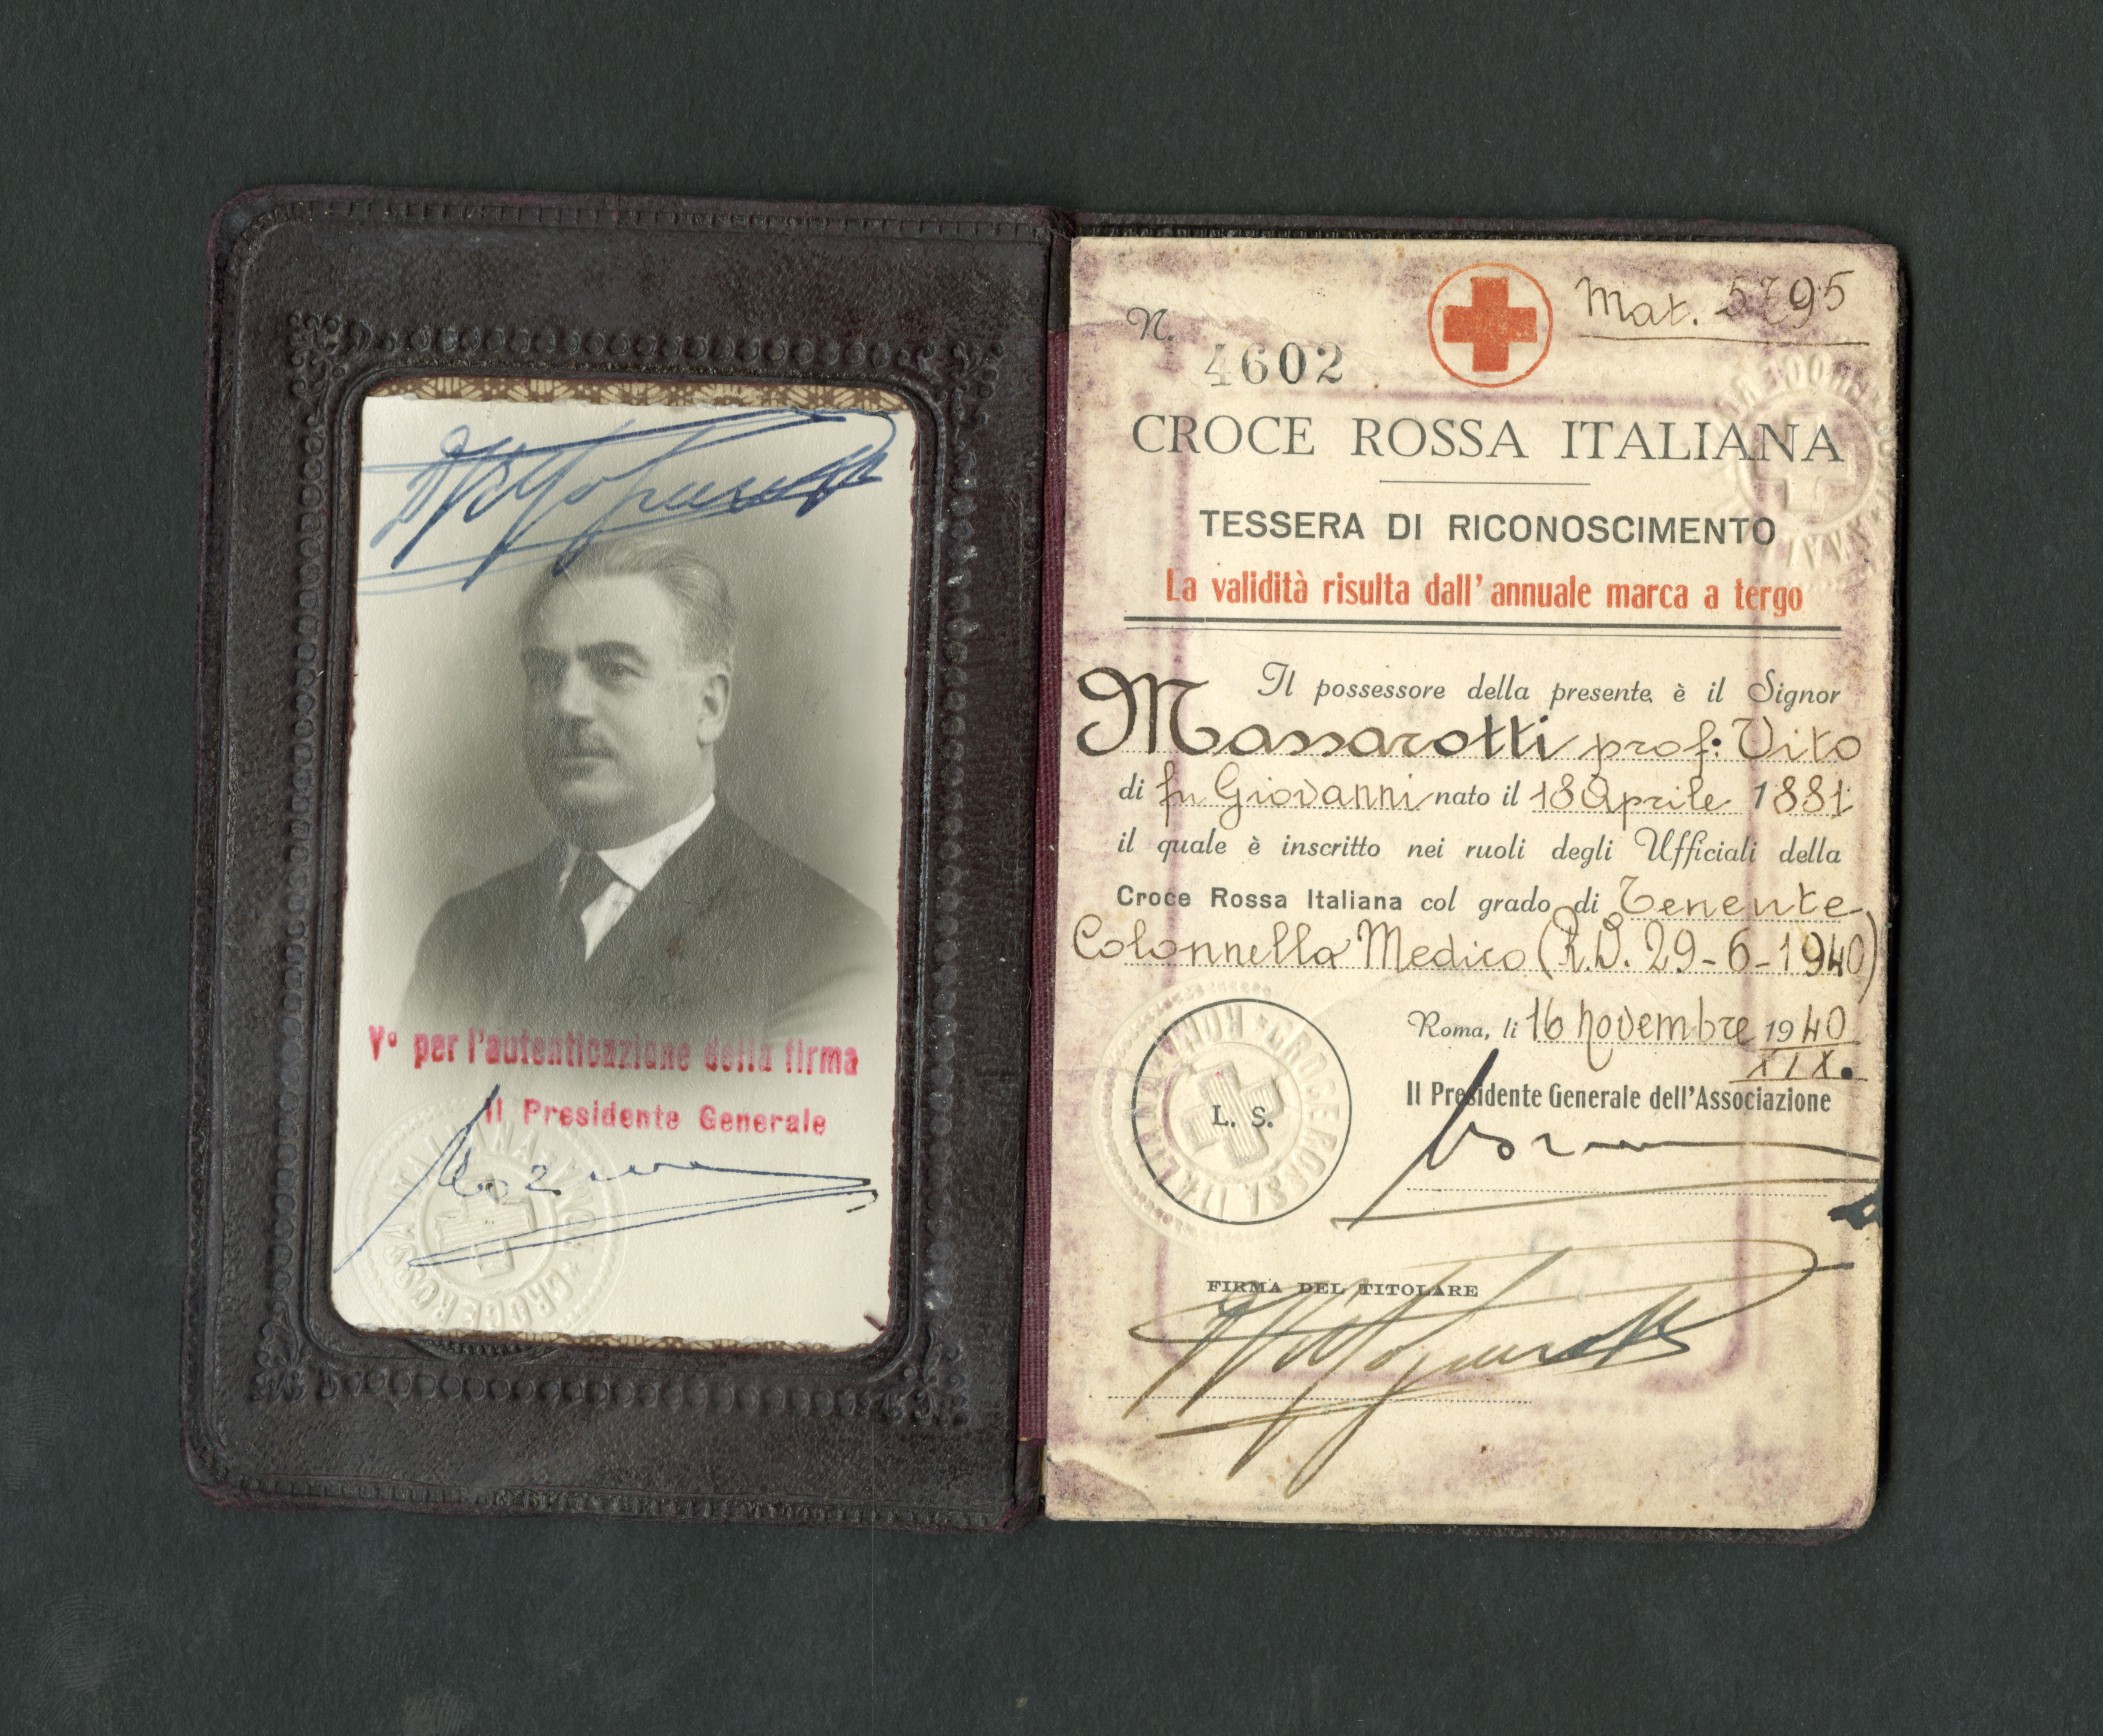 Vº per l'autenticazione della firma
Il Presidente Generale
CROCE ROSSA ITALIANA
N. 4602
Mat. 5795
CROCE ROSSA ITALIANA
TESSERA DI RICONOSCIMENTO
La validità risulta dall'annuale marca a tergo
Il possessore della presente è il Signor
Massarotti prof. Vito
di fu Giovanni nato il 18 Aprile 1881
il quale è inscritto nei ruoli degli Ufficiali della
Croce Rossa Italiana col grado di Tenente
Colonnello Medico (R.D. 29-6-1940)
Roma, li 16 novembre 1940
XIX.
Il Presidente Generale dell'Associazione
L. S.
CROCE ROSSA ITALIANA ROMA
FIRMA DEL TITOLARE